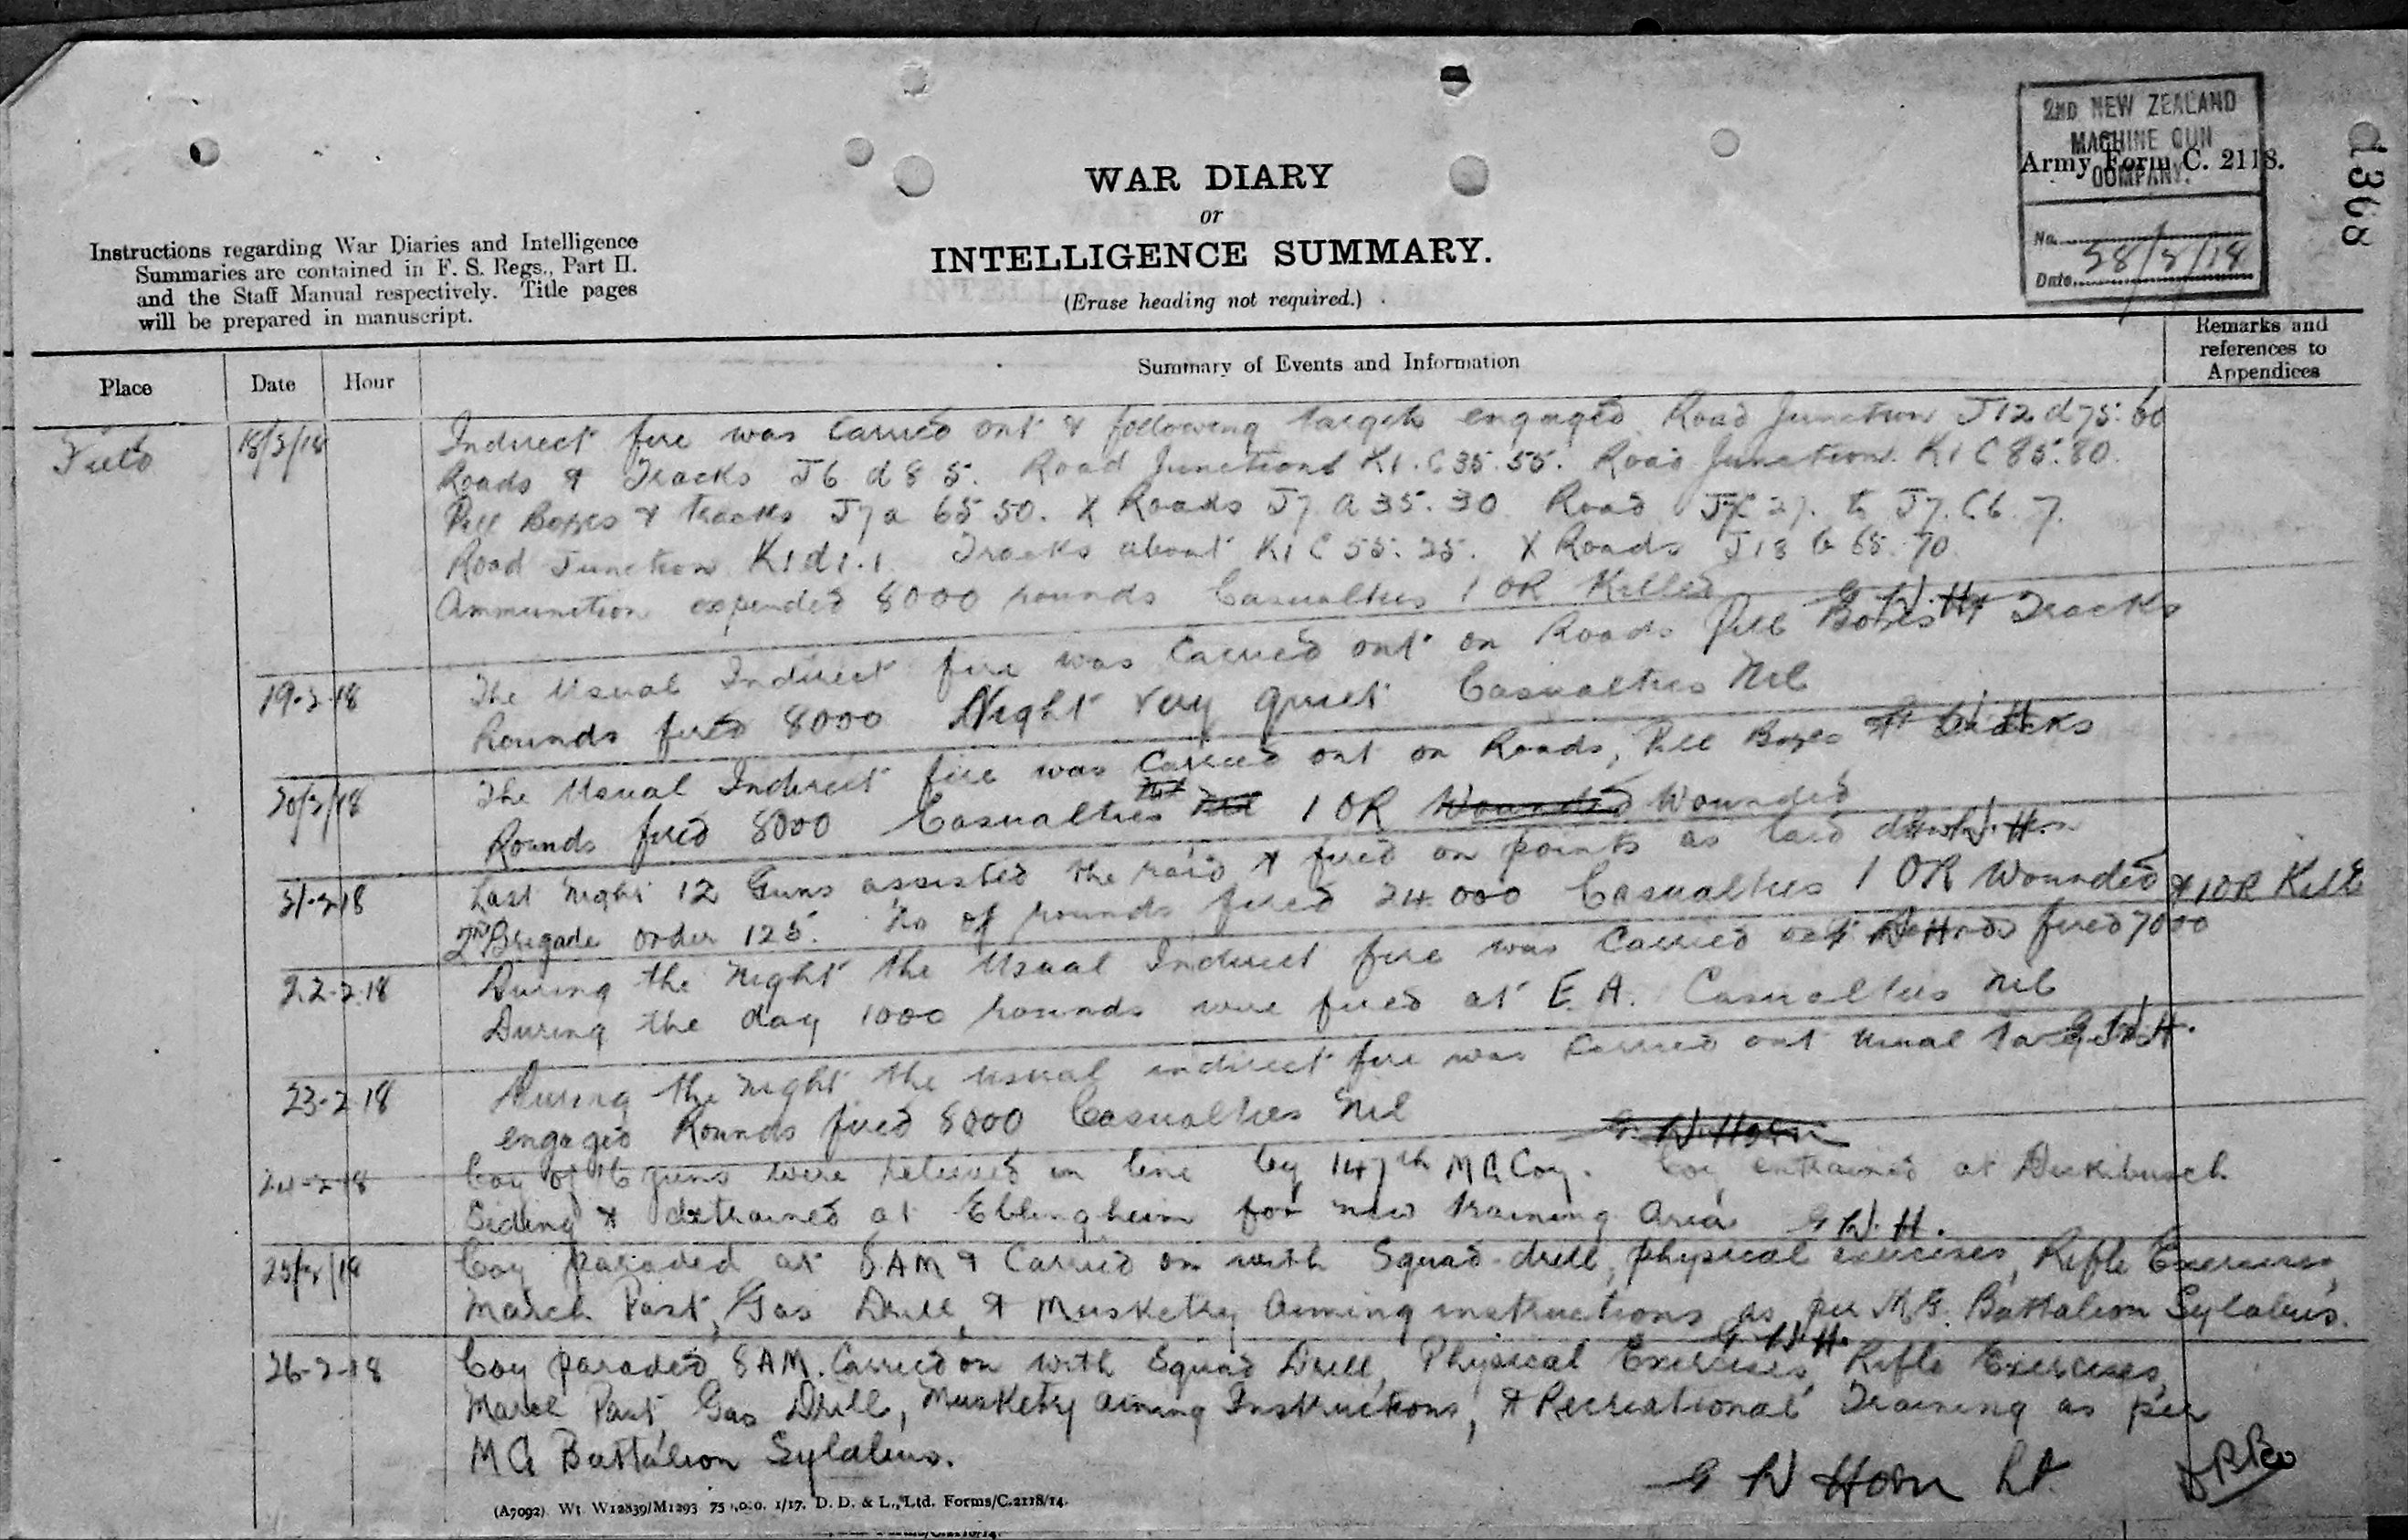 2ND NEW ZEALAND
MACHINE GUN
COMPANY.
Army Form C. 2118.
No.
Date 28/2/18
d368
WAR DIARY
or
INTELLIGENCE SUMMARY.
(Erase heading not required.)
Instructions regarding War Diaries and Intelligence
Summaries are contained in F. S. Regs., Part II.
and the Staff Manual respectively. Title pages
will be prepared in manuscript.
Place Date Hour Summary of Events and Information Remarks and references to Appendices
Field 18/2/18 Indirect fire was carried out & following targets engaged. Road Junction J12 d 75.60
Roads & Tracks J6 d 8 5. Road Junctions K1.C 35.55. Road Junction K1 C 85.80.
Pill Boxes & tracks J7 a 65 50. X Roads J7 a 35.30 Road J7C 27. to J7.C6.7.
Road Junction K1 d 1.1 Tracks about K1 C 55.25. X Roads J13 b 65.70
Ammunition expended 8000 rounds Casualties 1 OR Killed G.W.H.
19.2.18 The Usual Indirect fire was carried out on Roads Pill Boxes & Tracks
Rounds fired 8000 Night very quiet Casualties Nil G.W.H.
20/2/18 The Usual Indirect fire was carried out on Roads, Pill Boxes & tracks
Rounds fired 8000 Casualties Nil Nil 1 OR Wounded Wounded G.W.H.
21.2.18 Last night 12 Guns assisted the raid & fired on points as laid down in
2nd Brigade order 125. No of rounds fired 24.000 Casualties 1 OR Wounded & 1 OR Killed
G.W.H.
22.2.18 During the night the Usual Indirect fire was carried out Rounds fired 7000
During the day 1000 rounds were fired at E.A. Casualties Nil G.W.H.
23-2 18 During the night the usual indirect fire was carried out usual targets
engaged Rounds fired 8000 Casualties Nil G. W. Horn
24-2-18 Coy of 16 guns were relieved in line by 147th M G Coy. Coy entrained at Dickibusch
Siding & detrained at Ebblingheim for new training area G.W.H.
25/2/18 Coy paraded at 8 AM & Carried on with Squad drill, physical exercises, Rifle Exercises,
March Past, Gas Drill, & Musketry Aiming instructions as per M.G. Battalion Sylabus.
G.W.H.
26-2-18 Coy paraded 8 AM. Carried on with Squad Drill, Physical Exercises, Rifle Exercises,
March Past, Gas Drill, Musketry Aiming Instructions, & Recreational Training as per
M G Battalion Sylabus.
G W Horn Lt.
(A7092) Wt. W12839/M1293 75 ,0.0. 1/17. D. D. & L., Ltd. Forms/C.2118/14.